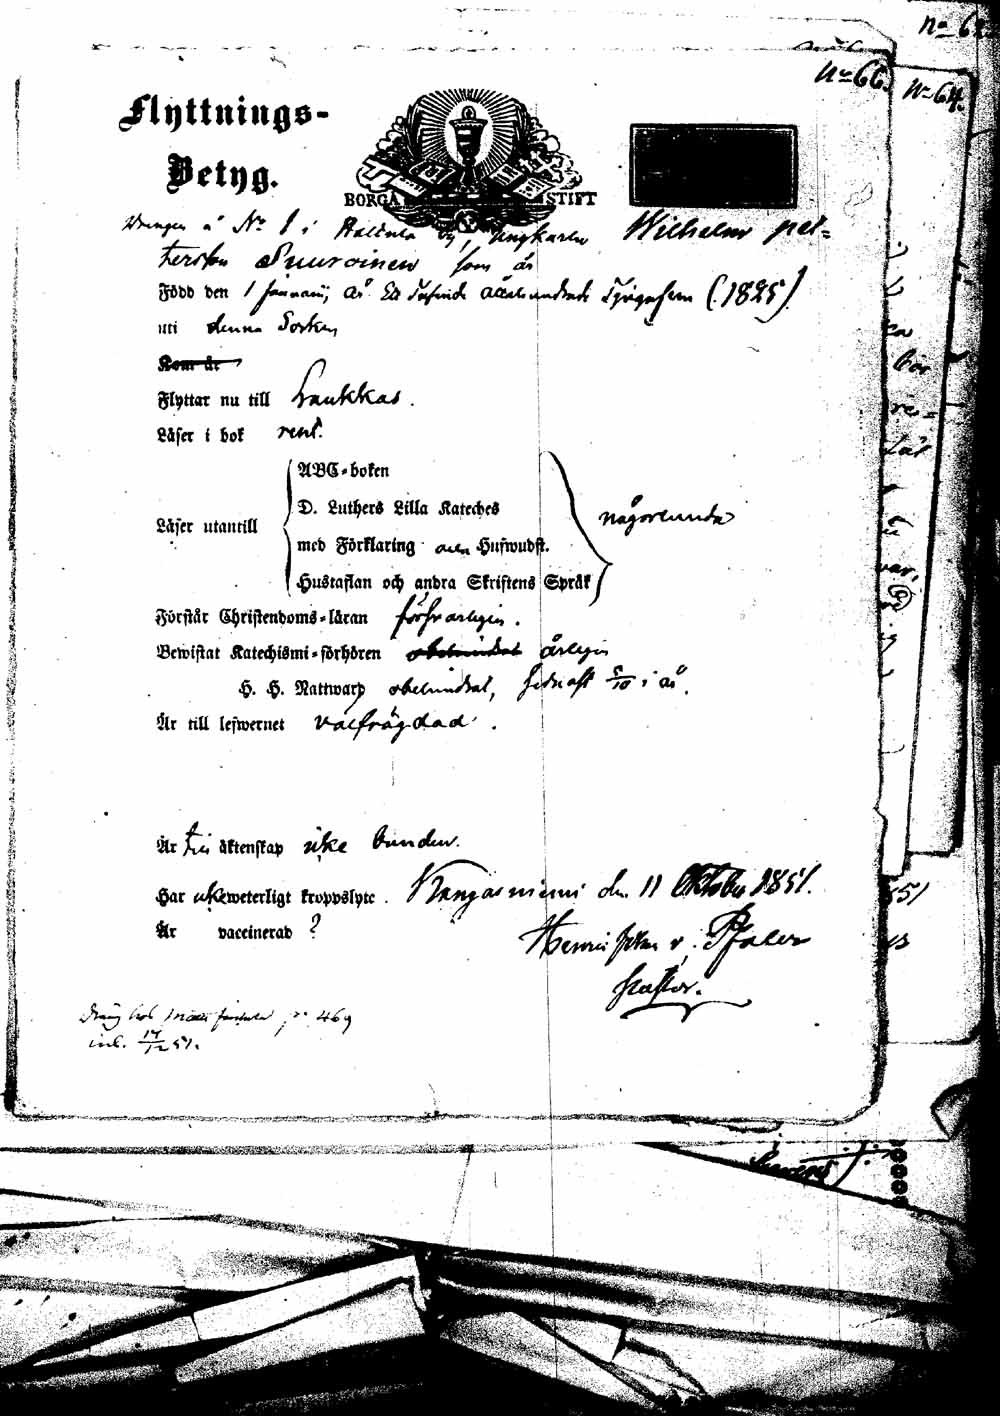 nº 66.
nº 64.
Flyttnings-
Betyg.
BORGÅ STIFT
Drengen å Nº 1 i by, ungkarlen Wilhelm pet-
tersson Puuroinen som är
Född den 1 Januarij år Ett Tusende åttahundrade Tjugufem (1825)
uti denna Socken
Kom år
Flyttar nu till Laukkas.
Läser i bok rent.
ABC-boken
D. Luthers Lilla Kateches
Läser utantill någorlunda
med Förklaring och Hufwudst.
Hustaflan och andra Skriftens Språk
Förstår Christendoms-läran försvarligen.
Bewistat Katechismi-förhören obehindrat årligen
H. H. Nattward obehindrat, sednast 5/10 i år.
Är till lefwernet välfrägdad.
Är till äktenskap icke bunden.
Har icke weterligt kroppslyte. Kangasniemi den 11 Oktober 1851.
Är vaccinerad ?
v. Pfaler
Pastor.
p. 469
inl. 51.